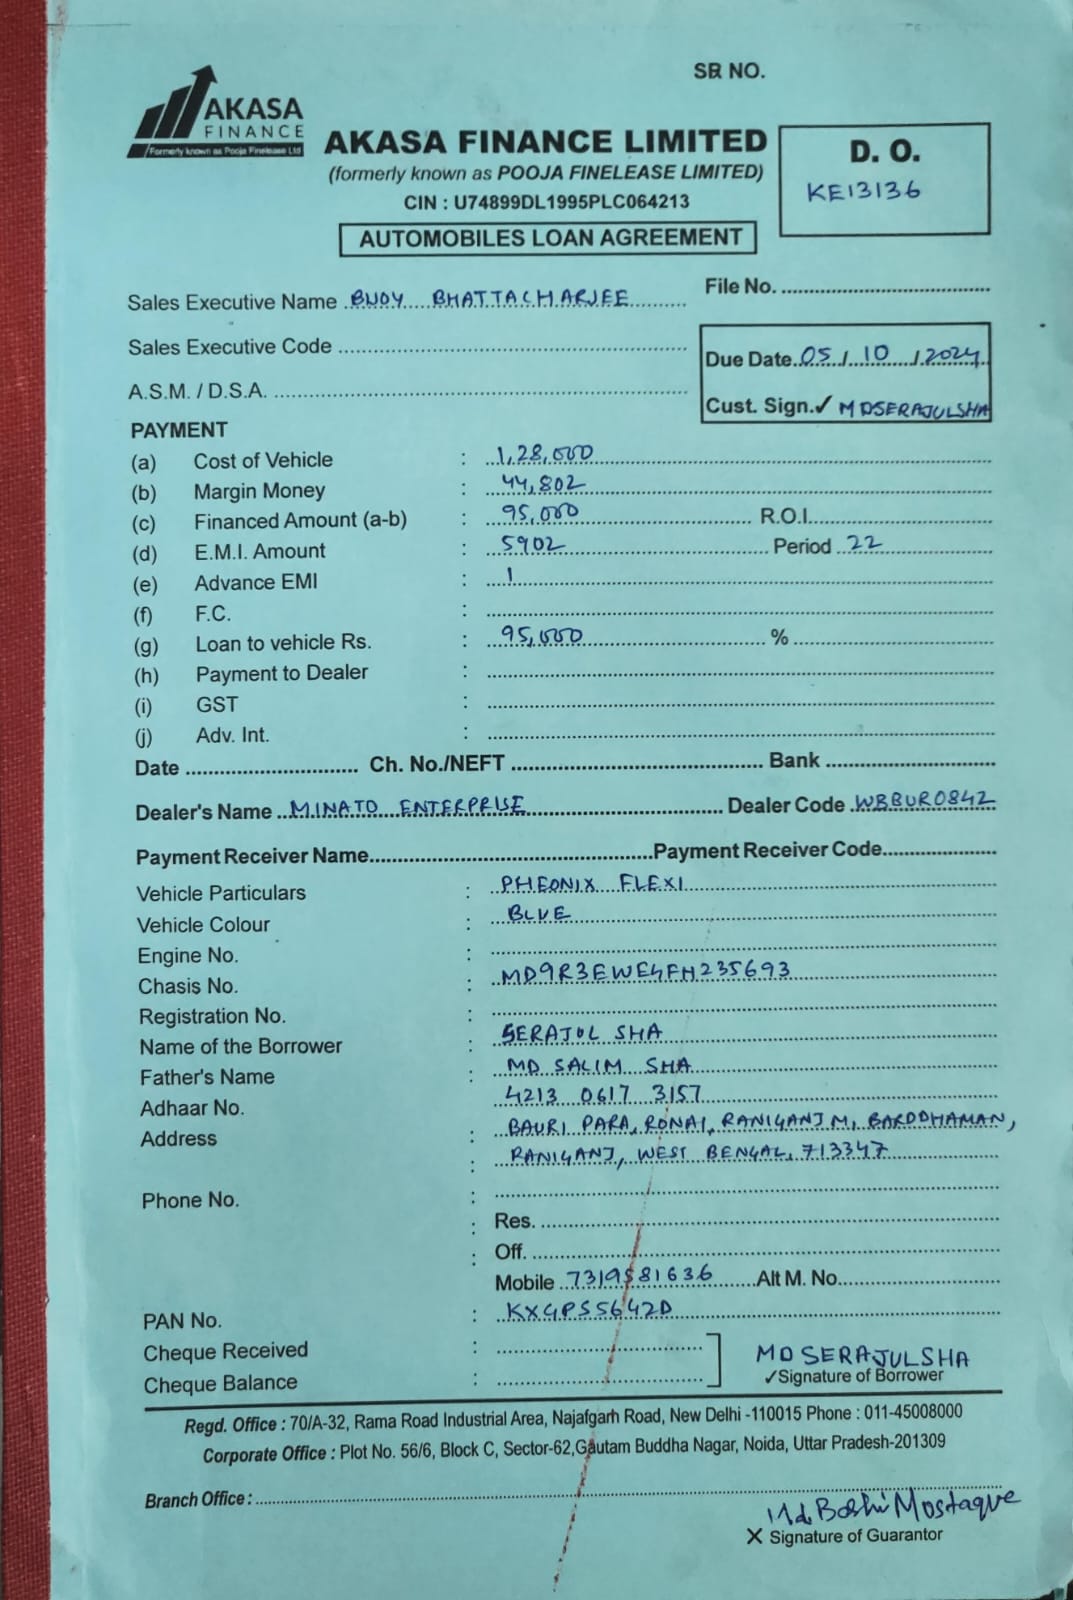 SR NO.
AKASA
FINANCE
Formerly known as Pooja Finelease Ltd
AKASA FINANCE LIMITED
(formerly known as POOJA FINELEASE LIMITED)
CIN : U74899DL1995PLC064213
AUTOMOBILES LOAN AGREEMENT
D. O.
KE13136
Sales Executive Name BIJOY BHATTACHARJEE
File No.
Sales Executive Code
A.S.M. / D.S.A.
Due Date 05 / 10 / 2024
Cust. Sign. ✓ MDSERAJULSHA
PAYMENT
(a) Cost of Vehicle : 1,28,000
(b) Margin Money : 44,802
(c) Financed Amount (a-b) : 95,000 R.O.I.
(d) E.M.I. Amount : 5902 Period 22
(e) Advance EMI : 1
(f) F.C. :
(g) Loan to vehicle Rs. : 95,000 %
(h) Payment to Dealer :
(i) GST :
(j) Adv. Int. :
Date Ch. No./NEFT Bank
Dealer's Name MINATO ENTERPRISE Dealer Code WBBUR0842
Payment Receiver Name Payment Receiver Code
Vehicle Particulars : PHEONIX FLEXI
Vehicle Colour : BLUE
Engine No. :
Chasis No. : MD9R3EWE4FH235693
Registration No. :
Name of the Borrower : SERAJUL SHA
Father's Name : MD SALIM SHA
Adhaar No. 4213 0617 3157
Address : BAURI PARA, RONAI, RANIGANJ M, BARDDHAMAN,
: RANIGANJ, WEST BENGAL, 713347
Phone No. :
: Res.
: Off.
Mobile 7319581636 Alt M. No.
PAN No. : KXGPS5642D
Cheque Received :
Cheque Balance :
MD SERAJULSHA
✓Signature of Borrower
Regd. Office : 70/A-32, Rama Road Industrial Area, Najafgarh Road, New Delhi -110015 Phone : 011-45008000
Corporate Office : Plot No. 56/6, Block C, Sector-62,Gautam Buddha Nagar, Noida, Uttar Pradesh-201309
Branch Office :
Md Mostaque
X Signature of Guarantor